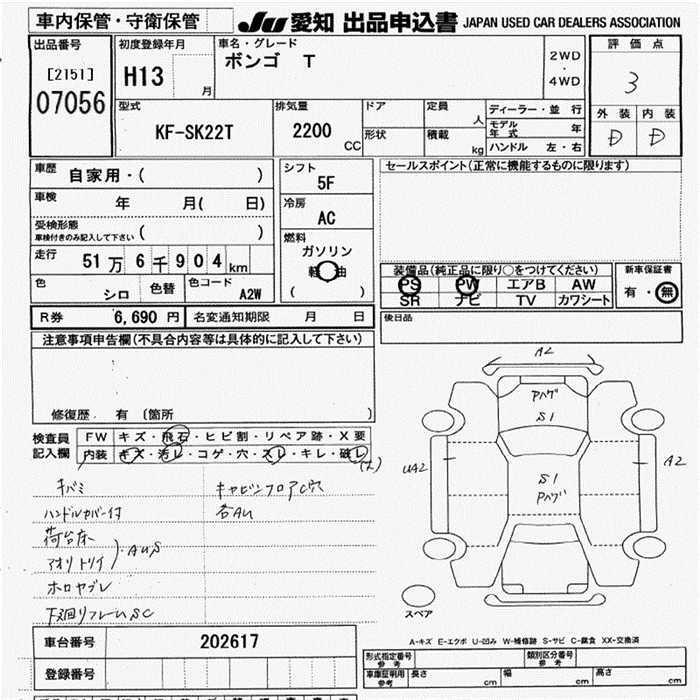 車内保管・守衛保管
JU 愛知 出品申込書 JAPAN USED CAR DEALERS ASSOCIATION
出品番号
[2151]
07056
初度登録年月
H13 月
車名・グレード
ボンゴ T
2WD
・
4WD
評価点
3
外装 内装
D D
型式
KF-SK22T
排気量
2200
CC
ドア
形状
定員
人
積載
kg
ディーラー・並行
モデル年式 年
ハンドル 左・右
車歴
自家用・( )
車検
年 月( 日)
受検形態
車検付きのみ記入して下さい ( )
走行
51万6千904km
色 シロ 色替 色コード A2W
シフト
5F
冷房
AC
燃料
ガソリン
軽油
( )
セールスポイント(正常に機能するものに限ります)
装備品(純正品に限り○をつけてください)
PS PW エアB AW
SR ナビ TV カワシート
新車保証書
有・無
R券 6,690円 名変通知期限 月 日
後日品
注意事項申告欄(不具合内容等は具体的に記入して下さい)
修復歴 有 (箇所 )
検査員記入欄
FW キズ・飛石・ヒビ割・リペア跡・X要
内装 キズ・汚レ・コゲ・穴・スレ・キレ・破レ
キバミ
ハンドルカバー付
荷台床
アオリトリイ AUS
ホロヤブレ
下廻リフレームSC
キャビンフロアC穴
各AU
A2
Pハゲ
S1
UA2
S1
Pハゲ
A2
スペア
A-キズ E-エクボ U-凹み W-補修跡 S-サビ C-腐食 XX-交換済
車台番号 202617
登録番号
形式指定番号 参考
類別区分番号 参考
車庫証明用 参考 長さ cm 幅 cm 高さ cm